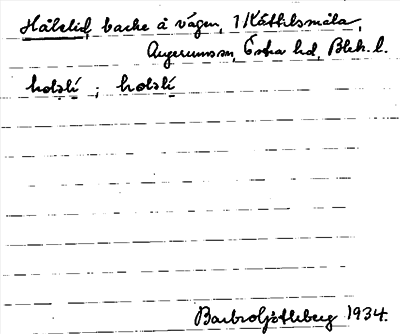 Hålslid, backe å vägen, 1 Kättilsmåla,
Augerums sn, Östra hd, Blek. l.
holslí ; holslí
Barbro Götheberg 1934.